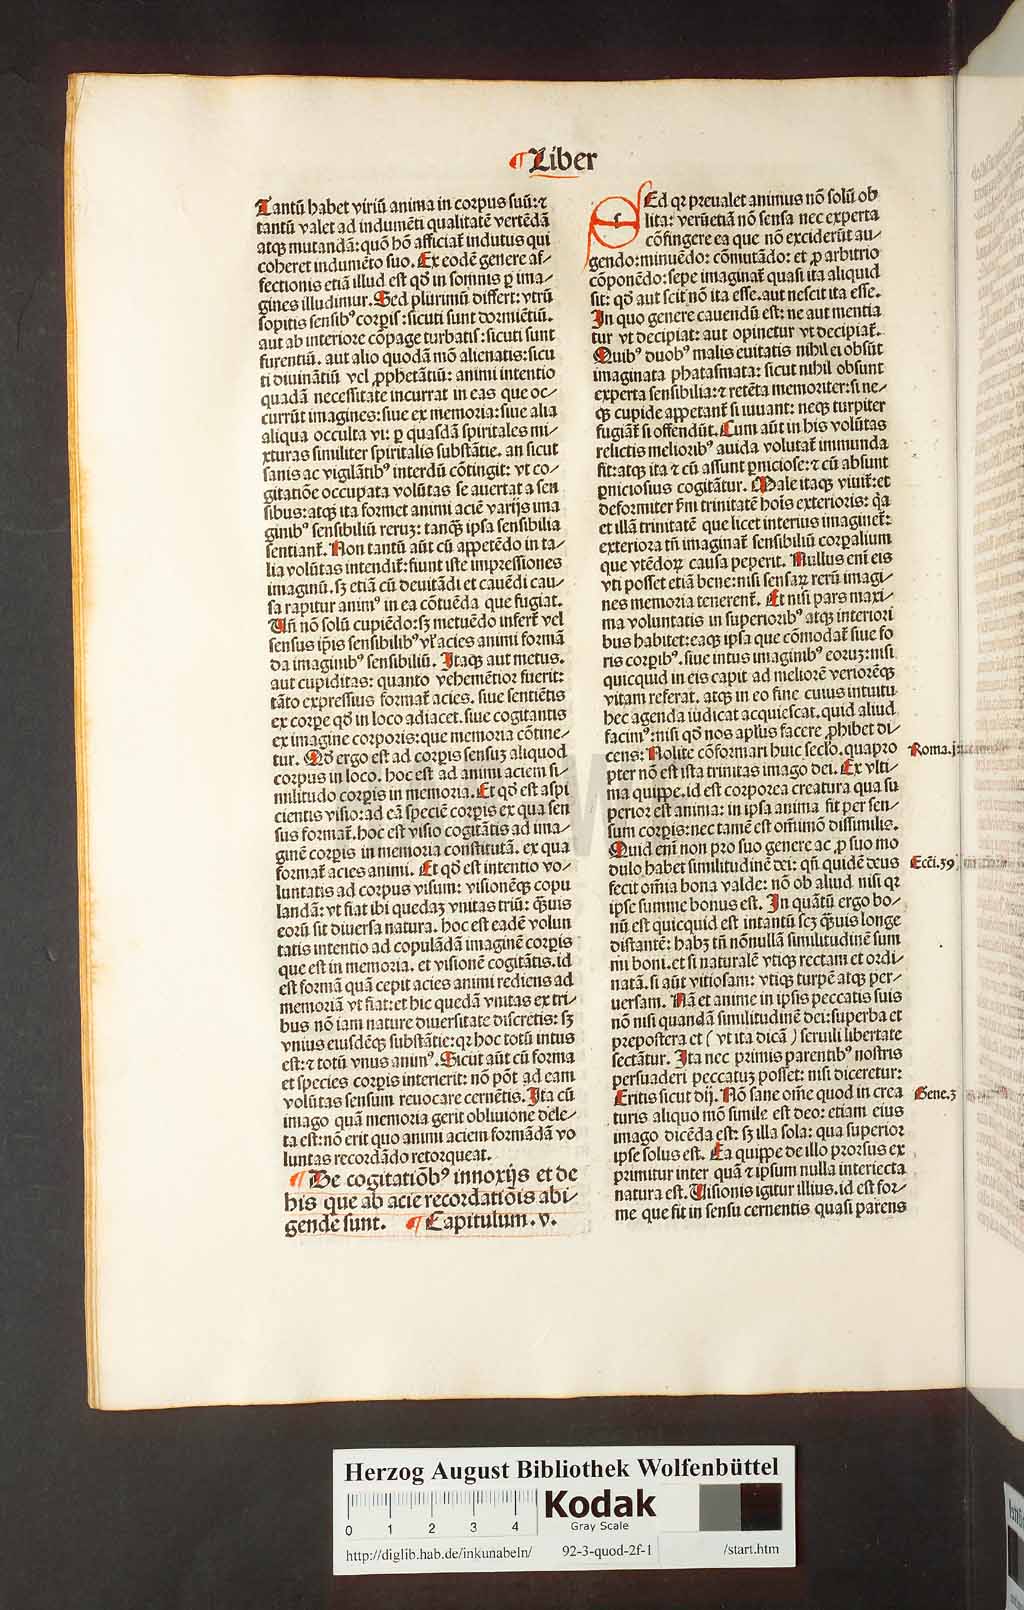 ¶Liber
Tantū habet viriū anima in corpus suū: ⁊
tantū valet ad indumēti qualitatē vertēdā
atqꝫ mutandā: quō hō afficiat᷑ indutus qui
coheret indumēto suo. Ex eodē genere af⸗
fectionis etiā illud est qd̄ in somnis ꝑ ima⸗
gines illudimur. Sed plurimū differt: vtrū
sopitis sensibꝰ corꝑis: sicuti sunt dormiētiū.
aut ab interiore cōpage turbatis: sicuti sunt
furentiū. aut alio quodā mō alienatis: sicu
ti diuinātiū vel ꝓphetātiū: animi intentio
quadā necessitate incurrat in eas que oc⸗
currūt imagines: siue ex memoria: siue alia
aliqua occulta vi: ꝑ quasdā spiritales mi⸗
xturas similiter spiritalis substātie. an sicut
sanis ac vigilātibꝰ interdū cōtingit: vt co⸗
gitatiōe occupata volūtas se auertat a sen
sibus: atqꝫ ita formet animi aciē varijs ima
ginibꝰ sensibiliū reruꝫ: tanqꝫ ipsa sensibilia
sentiant᷑. Non tantū aūt cū appetēdo in ta⸗
lia volūtas intendit᷑: fiunt iste impressiones
imaginū. sꝫ etiā cū deuitādi et cauēdi cau⸗
sa rapitur animꝰ in ea cōtuēda que fugiat.
Uñ nō solū cupiēdo: sꝫ metuēdo infert᷑ vel
sensus ip̄is sensibilibꝰ vl᷑ acies animi formā
da imaginibꝰ sensibiliū. Itaqꝫ aut metus.
aut cupiditas: quanto vehemētior fuerit:
tāto expressius format᷑ acies. siue sentiētis
ex corꝑe qd̄ in loco adiacet. siue cogitantis
ex imagine corporis: que memoria cōtine⸗
tur. Qd̄ ergo est ad corꝑis sensuꝫ aliquod
corpus in loco. hoc est ad animi aciem si⸗
militudo corꝑis in memoria. Et qd̄ est aspi
cientis visio: ad eā speciē corꝑis ex qua sen
sus format᷑. hoc est visio cogitātis ad ima⸗
ginē corꝑis in memoria constitutā. ex qua
format᷑ acies animi. Et qd̄ est intentio vo⸗
luntatis ad corpus visum: visionēqꝫ copu
landā: vt fiat ibi quedaꝫ vnitas triū: q̄uis
eorū sit diuersa natura. hoc est eadē volun
tatis intentio ad copulādā imaginē corꝑis
que est in memoria. et visionē cogitātis. id
est formā quā cepit acies animi rediens ad
memoriā vt fiat: et hic quedā vnitas ex tri⸗
bus nō iam nature diuersitate discretis: sꝫ
vnius eiusdēqꝫ substātie: qꝛ hoc totū intus
est: ⁊ totū vnus animꝰ. Sicut aūt cū forma
et species corꝑis interierit: nō pōt ad eam
volūtas sensum reuocare cernētis. Ita cū
imago quā memoria gerit obliuione dele⸗
ta est: nō erit quo animi aciem formādā vo
luntas recordādo retorqueat.
¶ De cogitatiōibꝰ innoxijs et de
his que ab acie recordatiōis abi⸗
gende sunt. ¶ Capitulum. v.
s
Ed qꝛ preualet animus nō solū ob
lita: verūetiā nō sensa nec experta
cōfingere ea que nō exciderūt au⸗
gendo: minuēdo: cōmutādo: et ꝓ arbitrio
cōponēdo: sepe imaginat᷑ quasi ita aliquid
sit: qd̄ aut scit nō ita esse. aut nescit ita esse.
In quo genere cauendū est: ne aut mentia
tur vt decipiat: aut opinetur vt decipiat᷑.
Quibꝰ duobꝰ malis euitatis nihil ei obsūt
imaginata phātasmata: sicut nihil obsunt
experta sensibilia: ⁊ retēta memoriter: si ne⸗
qꝫ cupide appetant᷑ si iuuant: neqꝫ turpiter
fugiāt᷑ si offendūt. Cum aūt in his volūtas
relictis melioribꝰ auida volutat᷑ immunda
fit: atqꝫ ita ⁊ cū assunt ꝑniciose: ⁊ cū absunt
ꝑniciosius cogitātur. Male itaqꝫ viuit᷑: et
deformiter ẜm trinitatē hoīs exterioris: q̄a
et illā trinitatē que licet interius imaginet᷑:
exteriora tñ imaginat᷑ sensibiliū corꝑalium
que vtēdoꝝ causa peperit. Nullus enī eis
vti posset etiā bene: nisi sensaꝝ rerū imagi⸗
nes memoria tenerent᷑. Et nisi pars maxi⸗
ma voluntatis in superioribꝰ atqꝫ interiori
bus habitet: eaqꝫ ipsa que cōmodat᷑ siue fo
ris corꝑibꝰ. siue intus imaginibꝰ eoruꝫ: nisi
quicquid in eis capit ad meliorē veriorēqꝫ
vitam referat. atqꝫ in eo fine cuius intuitu
hec agenda iudicat acquiescat. quid aliud
facimꝰ: nisi qd̄ nos apl̄us facere ꝓhibet di⸗
cens: Nolite cōformari huic seclo. quapro
pter nō est ista trinitas imago dei. Ex vlti⸗
ma quippe. id est corporea creatura qua su
perior est anima: in ipsa anima fit per sen⸗
sum corꝑis: nec tamē est om̄imō dissimilis.
Quid enī non pro suo genere ac ꝓ suo mo
dulo habet similitudinē dei: qñ quidē deus
fecit om̄ia bona valde: nō ob aliud nisi qꝛ
ipse summe bonus est. In quātū ergo bo⸗
nū est quicquid est intantū scꝫ q̄uis longe
distantē: habꝫ tñ nōnullā similitudinē sum
mi boni. et si naturalē vtiqꝫ rectam et ordi⸗
natā. si aūt vitiosam: vtiqꝫ turpē atqꝫ per⸗
uersam. Nā et anime in ipsis peccatis suis
nō nisi quandā similitudinē dei: superba et
prepostera et (vt ita dicā) seruili libertate
sectātur. Ita nec primis parentibꝰ nostris
persuaderi peccatuꝫ posset: nisi diceretur:
Eritis sicut dij. Nō sane om̄e quod in crea
turis aliquo mō simile est deo: etiam eius
imago dicēda est: sꝫ illa sola: qua superior
ipse solus est. Ea quippe de illo prorsus ex
primitur inter quā ⁊ ipsum nulla interiecta
natura est. Uisionis igitur illius. id est for⸗
me que fit in sensu cernentis quasi parens
Roma.
Ecci. 39
Gene.3
Herzog August Bibliothek Wolfenbüttel
0 1 2 3 4
Kodak
Gray Scale
http://diglib.hab.de/inkunabeln/ 92-3-quod-2f-1 /start.htm